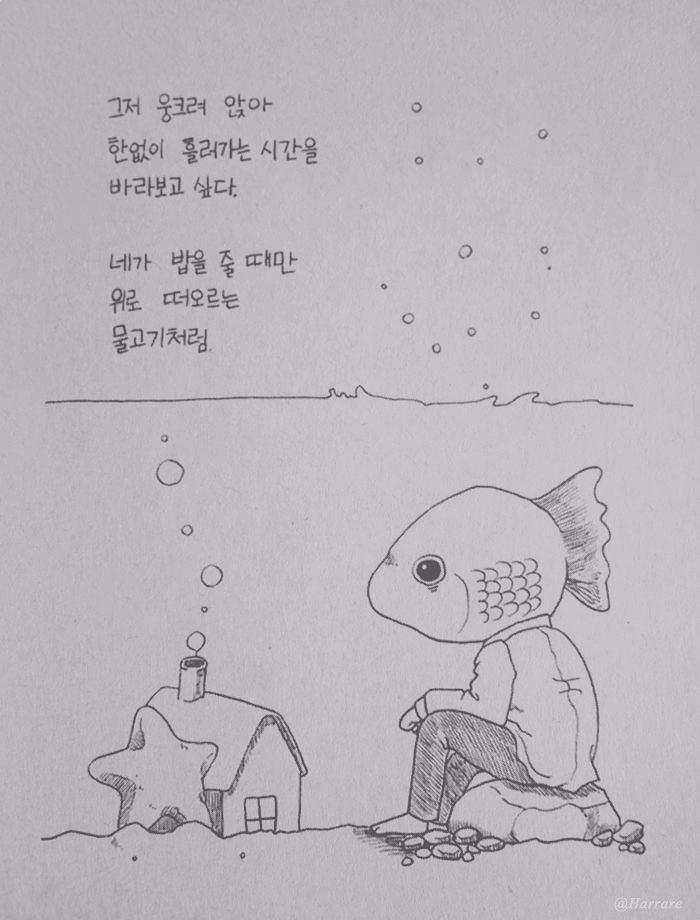 그저 웅크려 앉아
한없이 흘러가는 시간을
바라보고 싶다.
네가 밥을 줄 때만
위로 떠오르는
물고기처럼.
@Harrare